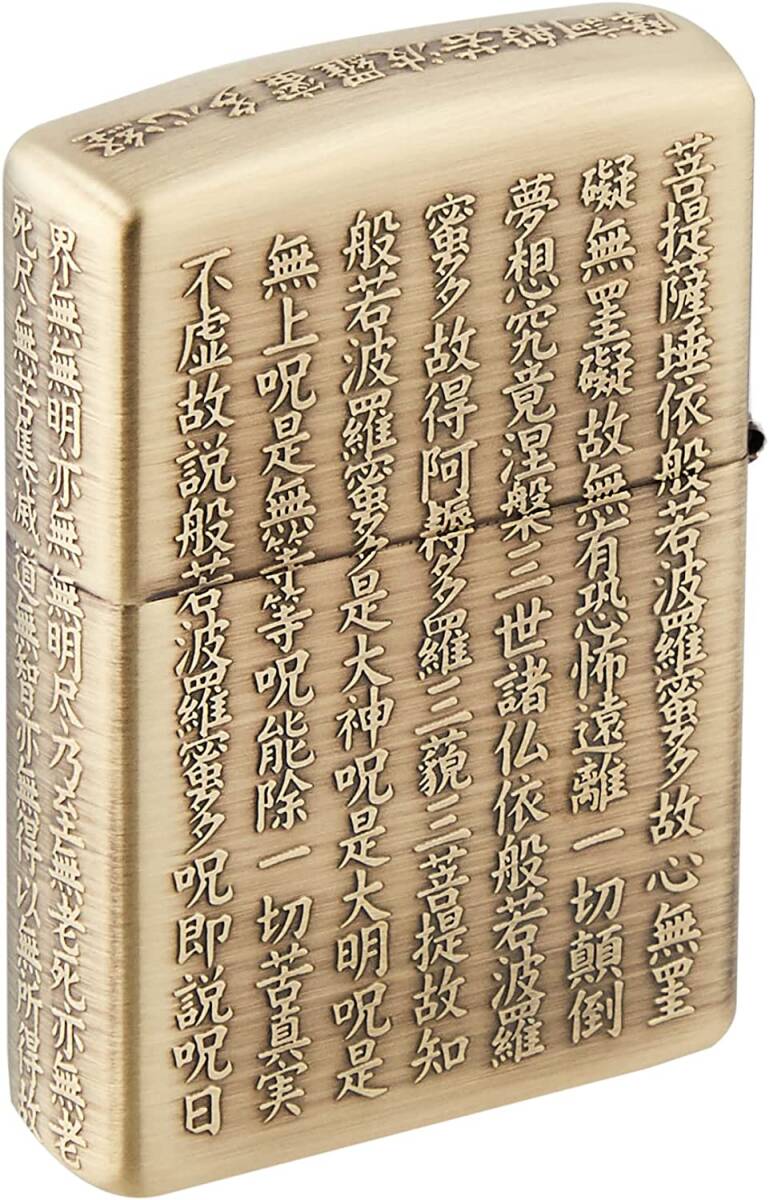 摩訶般若波羅蜜多心経
界無無明亦無無明尽乃至無老死亦無老
死尽無苦集滅道無智亦無得以無所得故
菩提薩埵依般若波羅蜜多故心無罣
礙無罣礙故無有恐怖遠離一切顛倒
夢想究竟涅槃三世諸仏依般若波羅
蜜多故得阿耨多羅三藐三菩提故知
般若波羅蜜多是大神呪是大明呪是
無上呪是無等等呪能除一切苦真実
不虚故説般若波羅蜜多呪即説呪曰